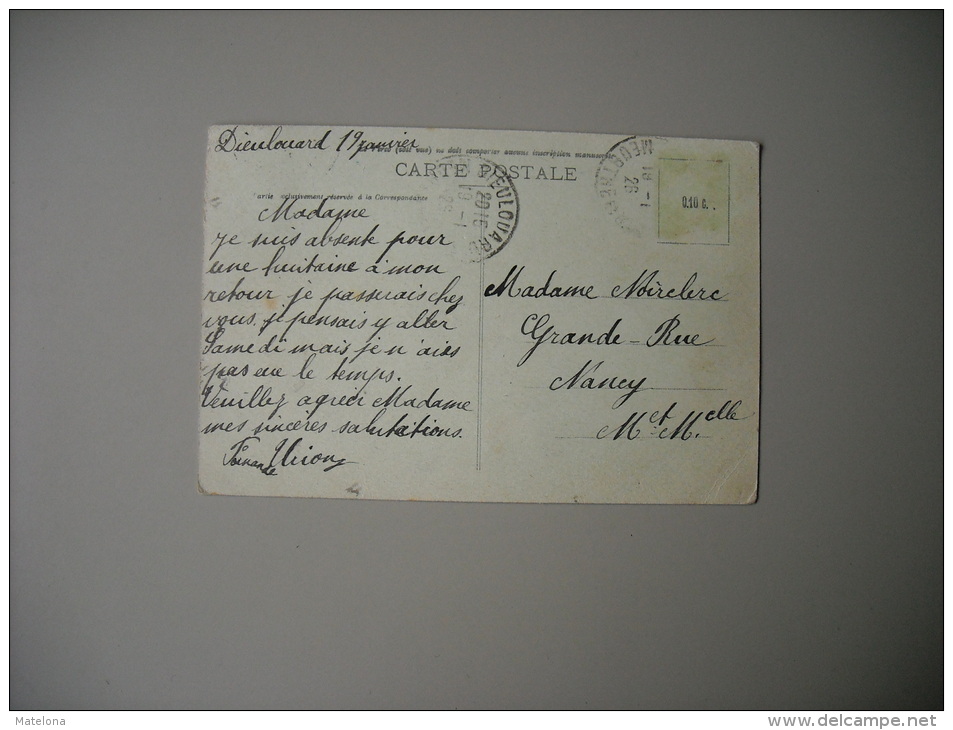 Dieulouard 19 janvier
(tout vus) ne doit comporter aucune inscription manuscrite
CARTE POSTALE
exclusivement réservée à la Correspondance
Madame
je suis absente pour
une huitaine à mon
retour je passerais chez
vous. je pensais y aller
Samedi mais je n'aies
pas eue le temps.
Veuillez agréer Madame
mes sincères salutations.
Fernande
DIEULOUARD
20 15
19 - 1
26
MEURTHE
19 - 1
26
0.10 c.
Madame Noirclerc
Grande-Rue
Nancy
M et Melle
Matelona
www.delcampe.net